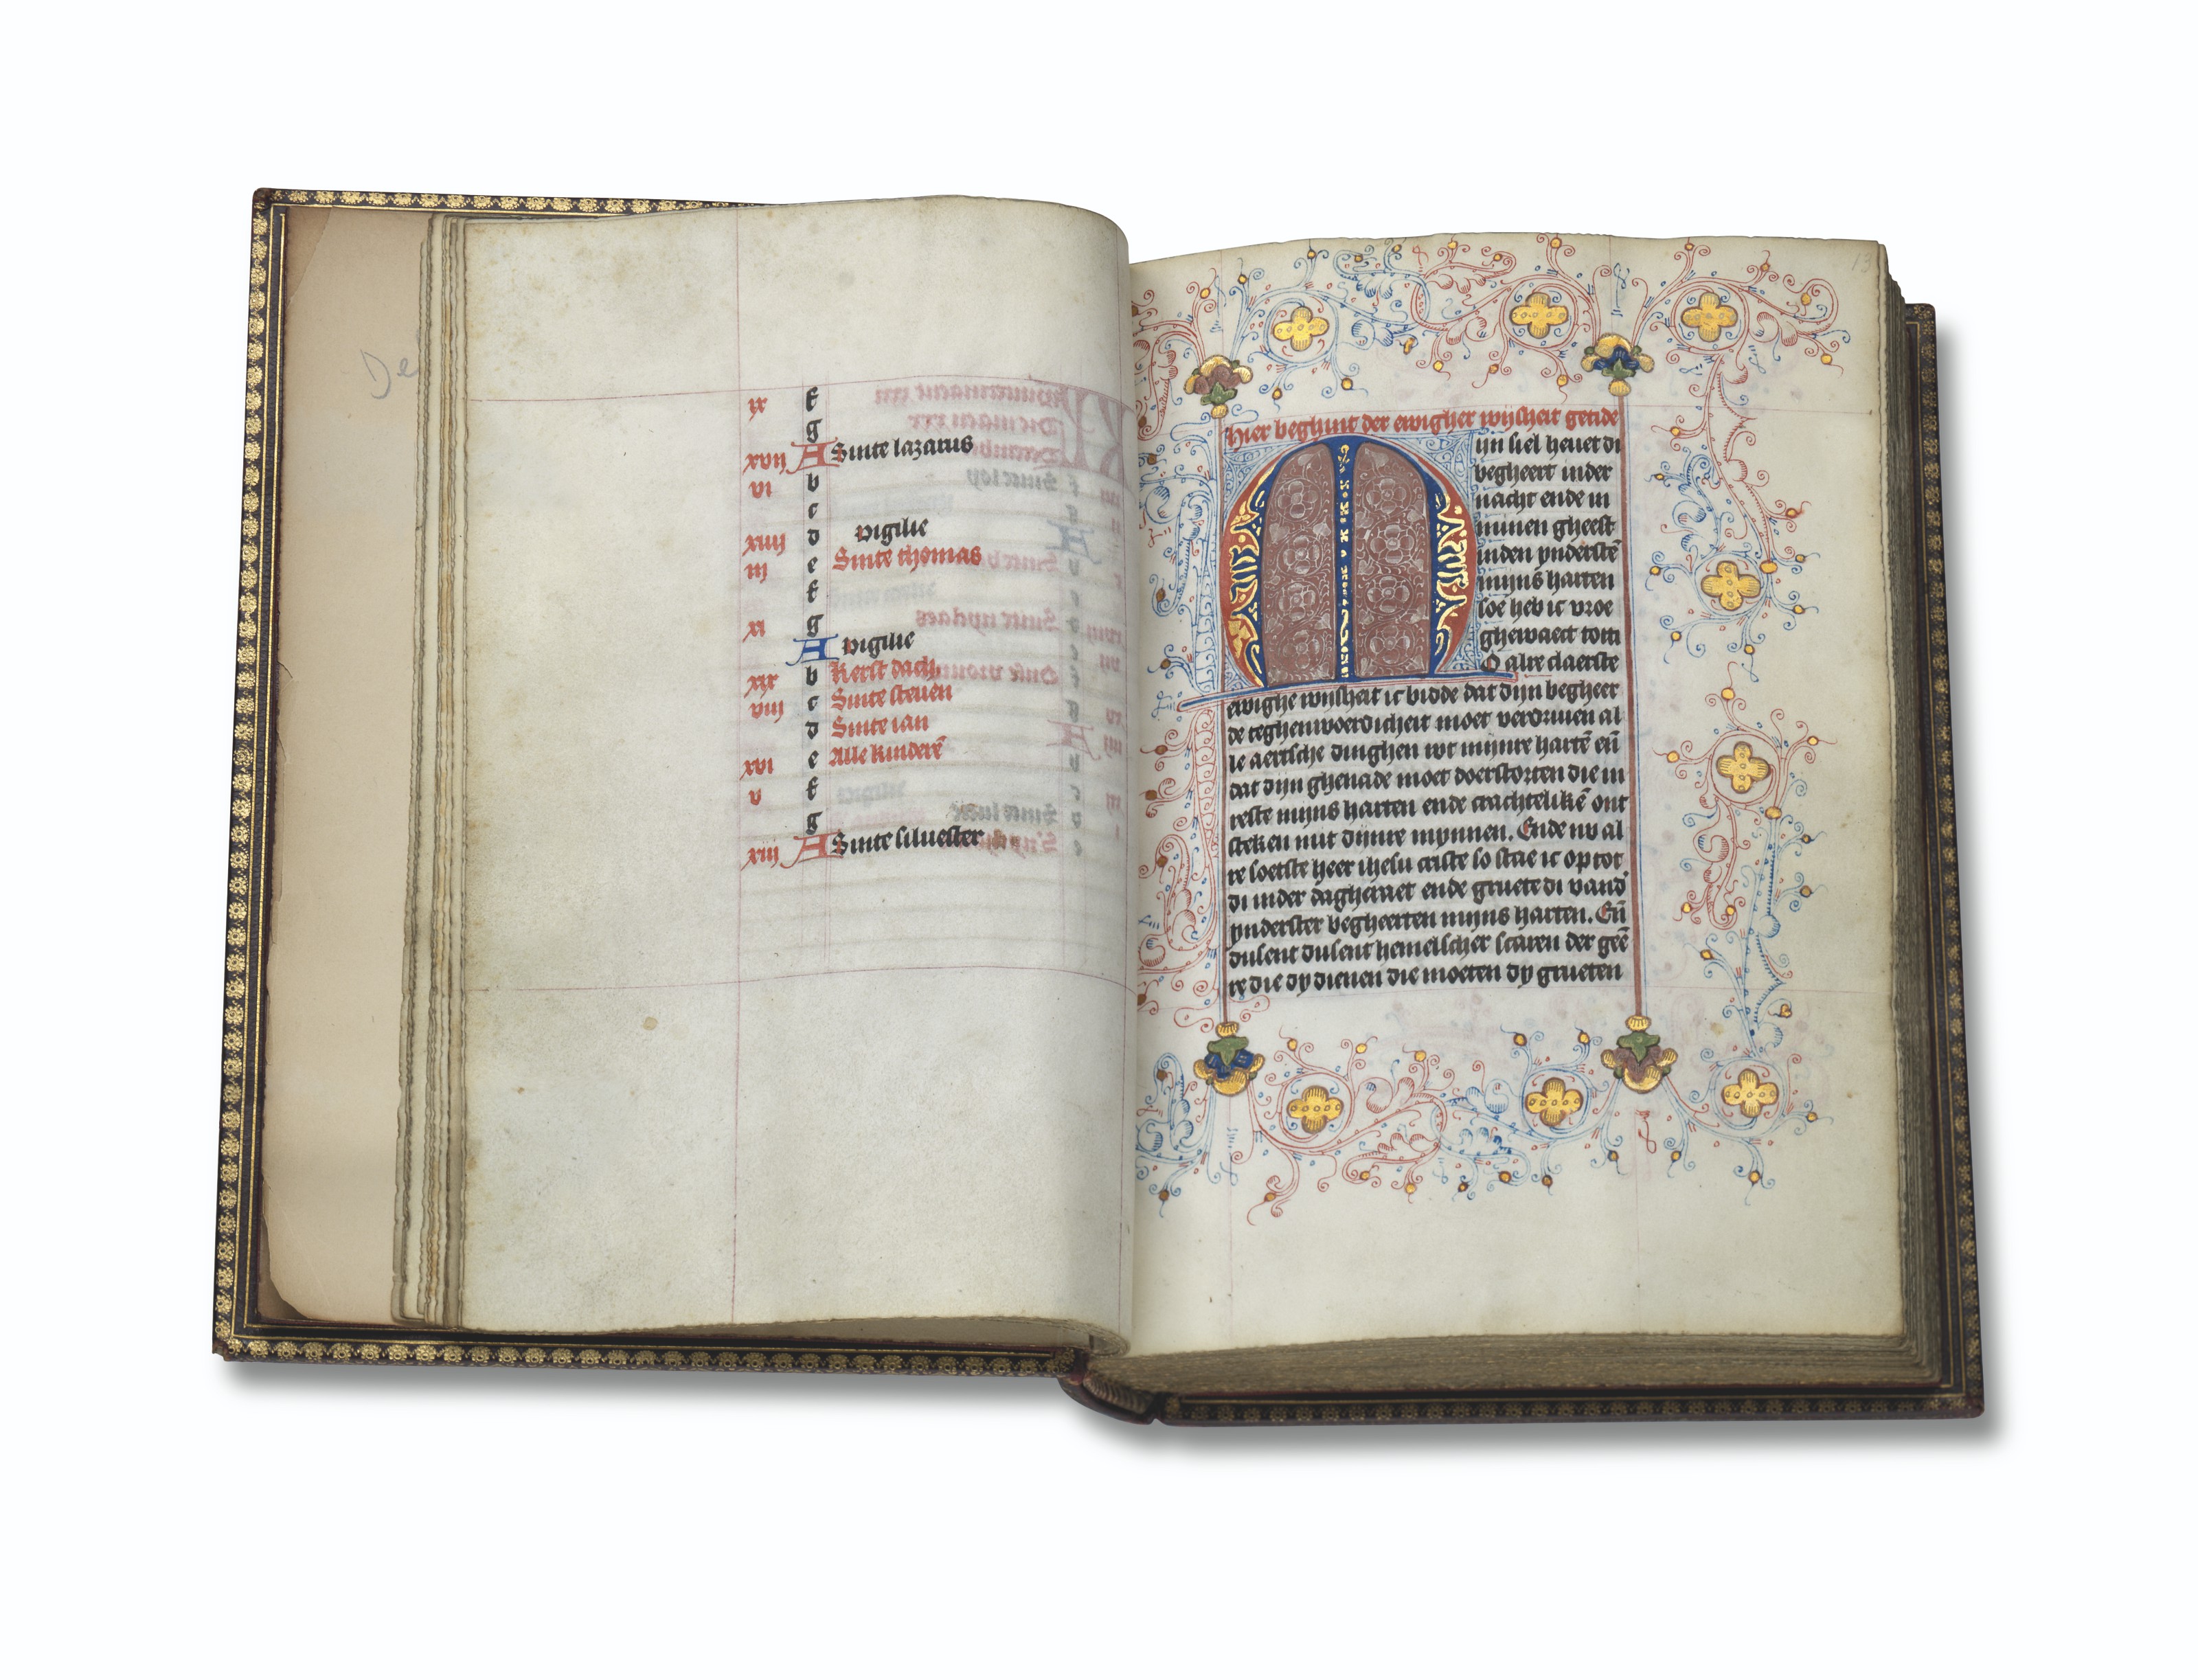 De
ix f
g
xvii A Sinte lazarus
vi b
c
xiiii d vigilie
iii e Sinte thomas
f
xi g
A vigilie
xix b Kerst dach
viii c Sinte steuen
d Sinte ian
xvi e Alle kinderē
v f
g
xiii A Sinte siluester
13
Hier beghint der ewigher wijsheit getide
Mijn siel heuet di
begheert inder
nacht ende in
minen gheest
inden ynderstē
mijns harten
soe heb ic vroe
ghewaect totti
O alre claerste
ewighe wijsheit ic bidde dat dijn begheer
de teghenwoerdicheit moet verdriuen al
le aertsche dinghen wt mijnre hartē eñ
dat dijn ghenade moet doerstorten die in
reste mijns harten ende crachtelikē ont
steken mit dijnre mynnen. Ende nv al
re soetste heer ihesu criste so stae ic op tot
di inder dagheraet ende gruete di vand
ynderster begheerten mijns harten. Eñ
dusent dusent hemelscher scaren der gee
re die dy dienen die moeten dy grueten